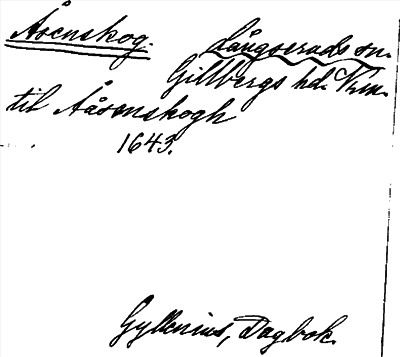 Åsenskog. Långseruds sn.
Gillbergs hd. Vrm.
til Ååsenskogh
1643.
Gyllenius, Dagbok.